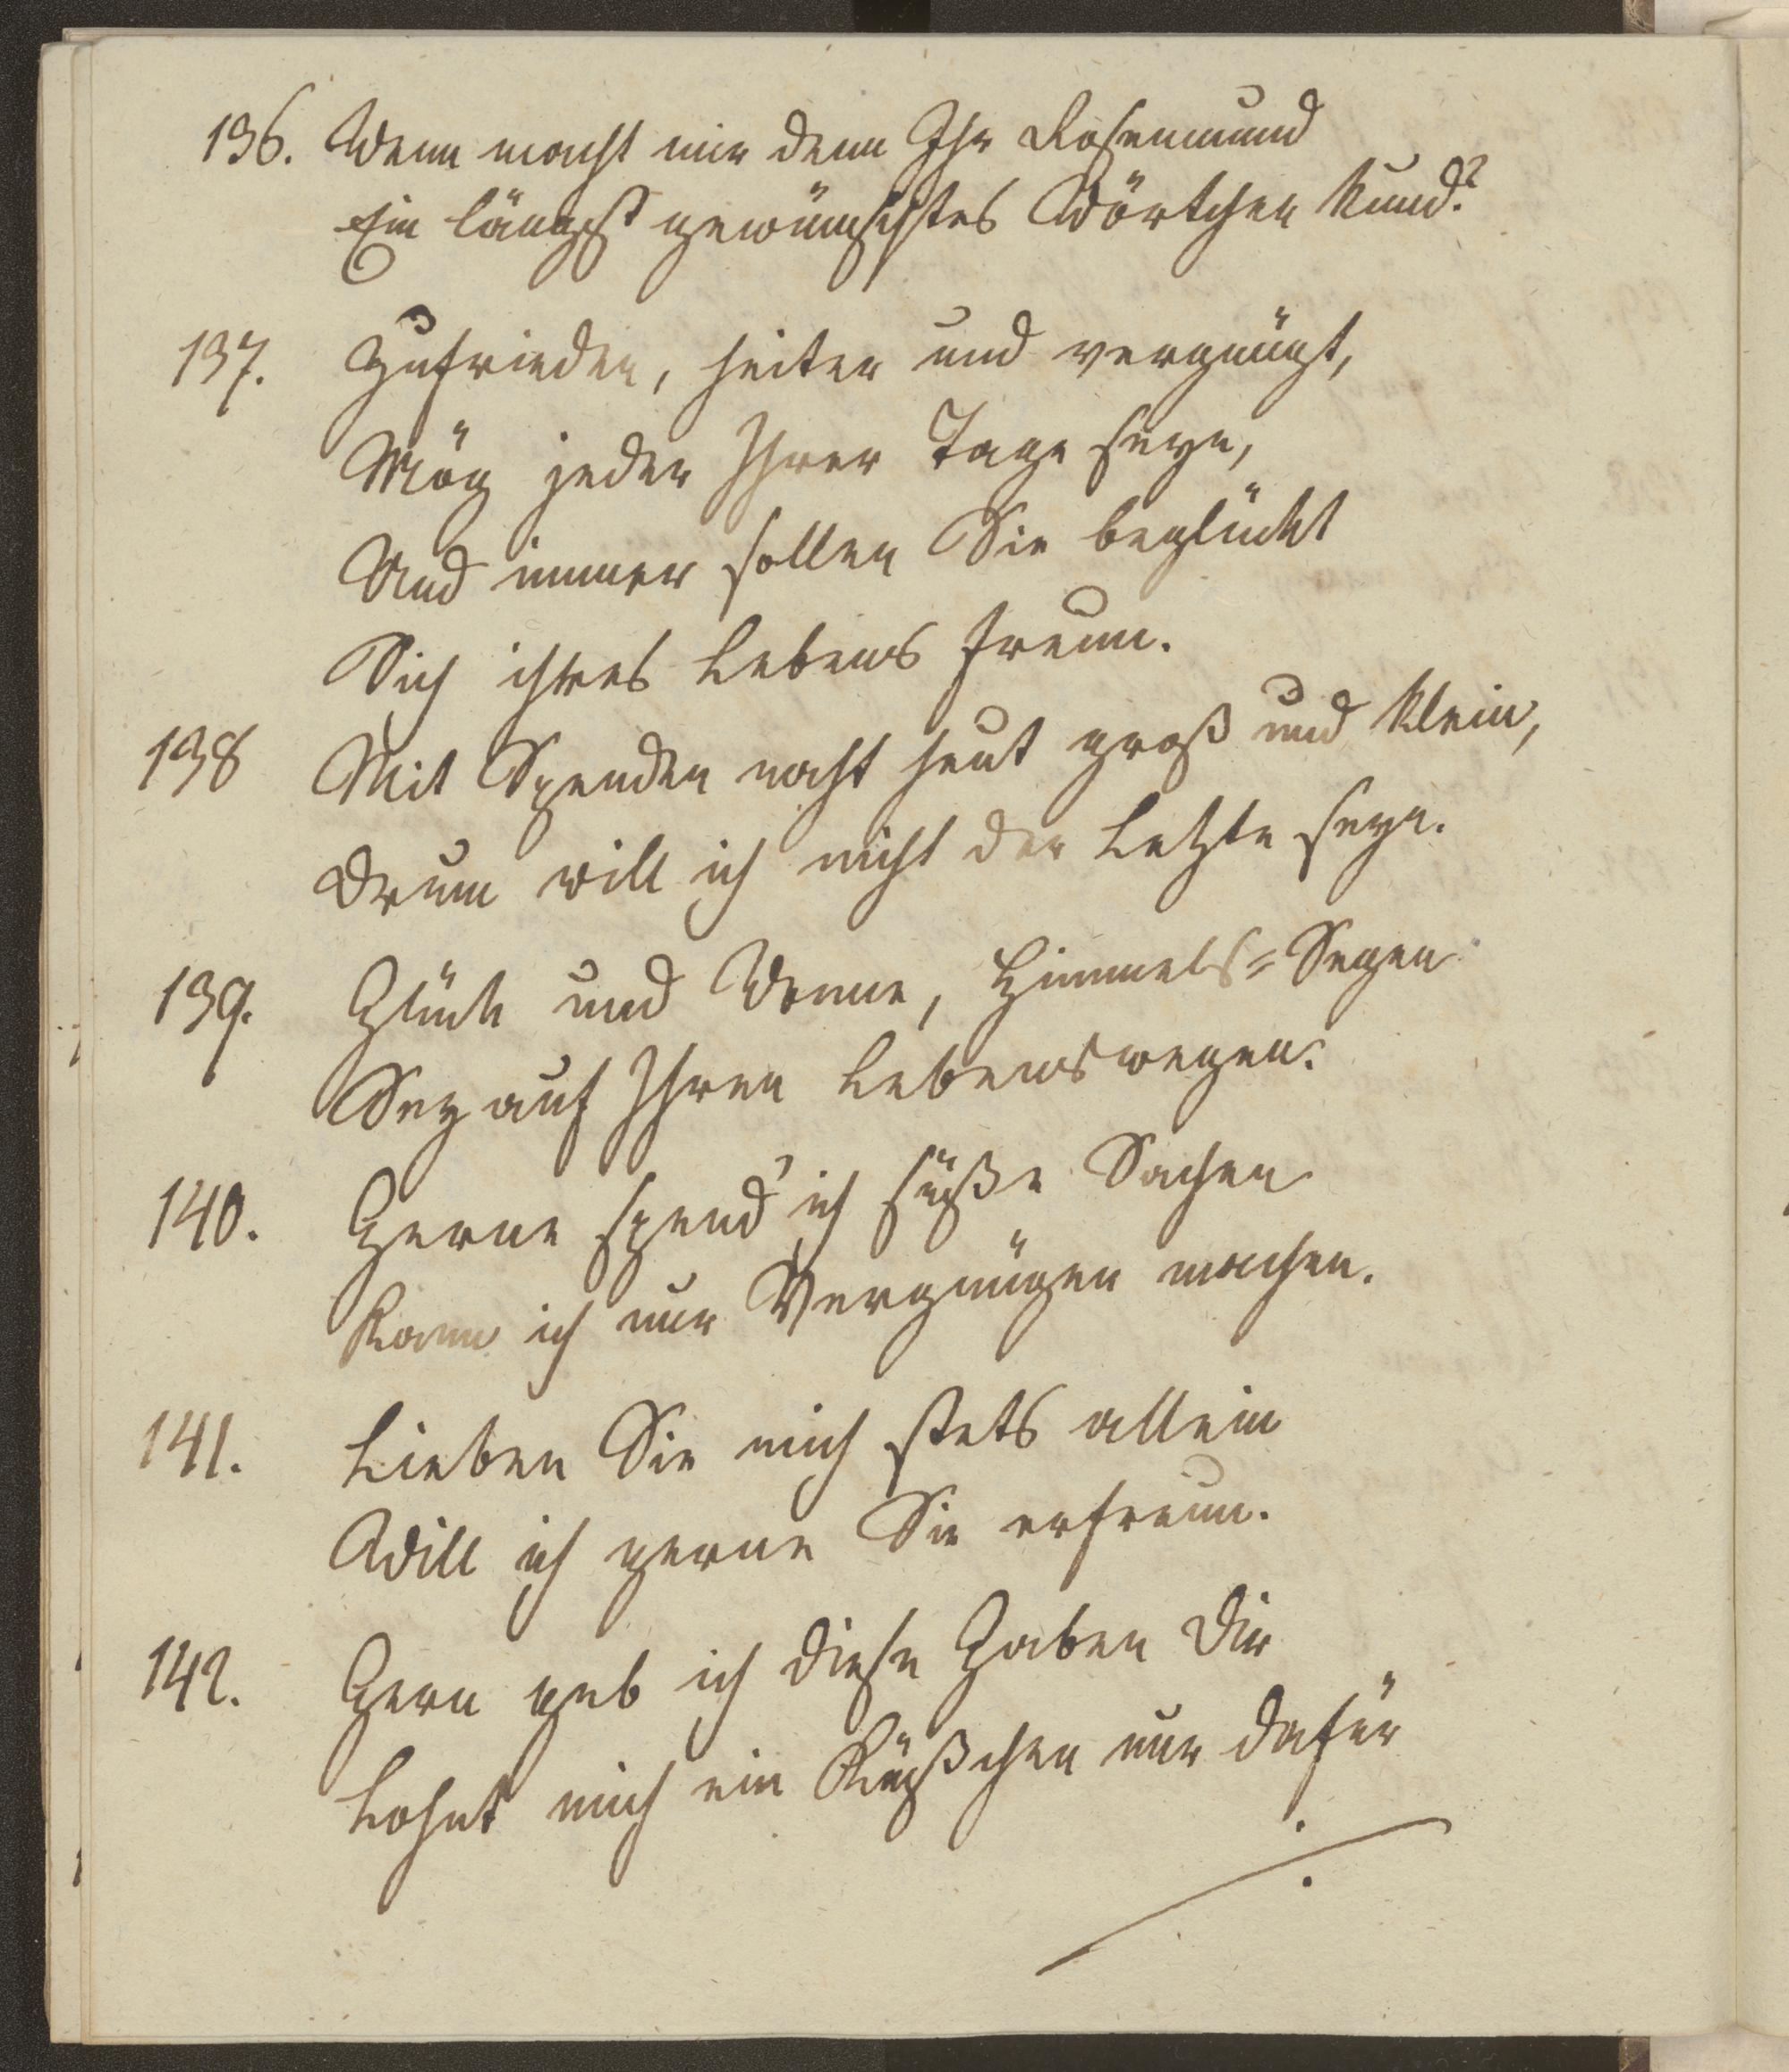 136. Wenn macht mir denn Ihr Rosenmund
Ein längst gewünschtes Wörtchen kund?
137. Zufrieden, heiter und vergnügt,
Mög jeder Ihrer Tage seyn,
Und immer sollen Sie beglückt
Sich ihres Lebens freun.
138 Mit Spenden naht heut groß und klein,
Drum will ich nicht der Letzte seyn.
139. Glück und Wonne, Himmels=Segen
Sey auf Ihren Lebenswegen.
140. Gerne spend' ich süße Sachen
Kann ich nur Vergnügen machen.
141. Lieben Sie mich stets allein
Will ich gerne Sie erfreun.
142. Gern geb ich diese Gaben Dir
Lohnt mich ein Küßchen nur dafür